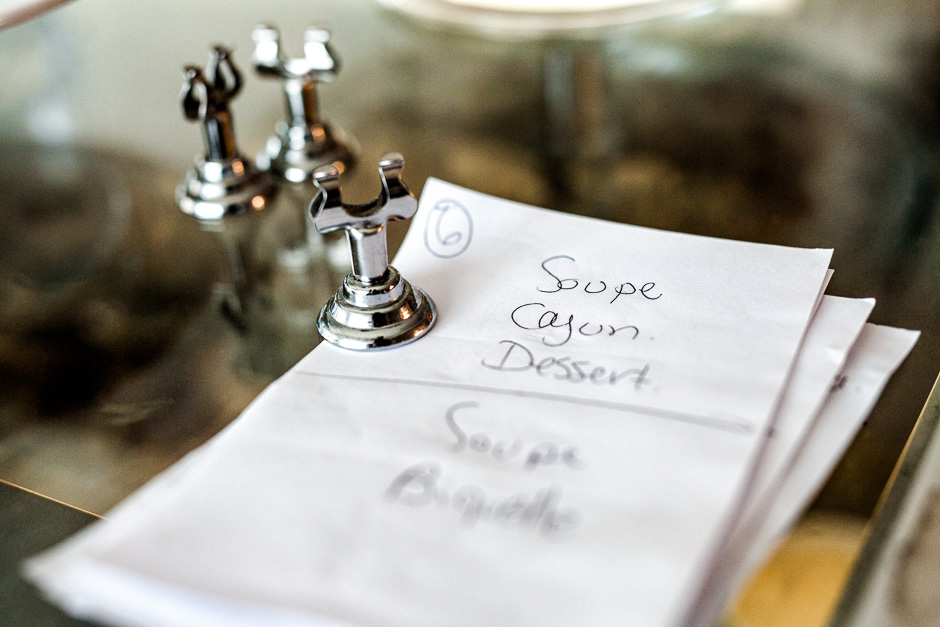 6
Soupe
Cajun.
Dessert.
Soupe